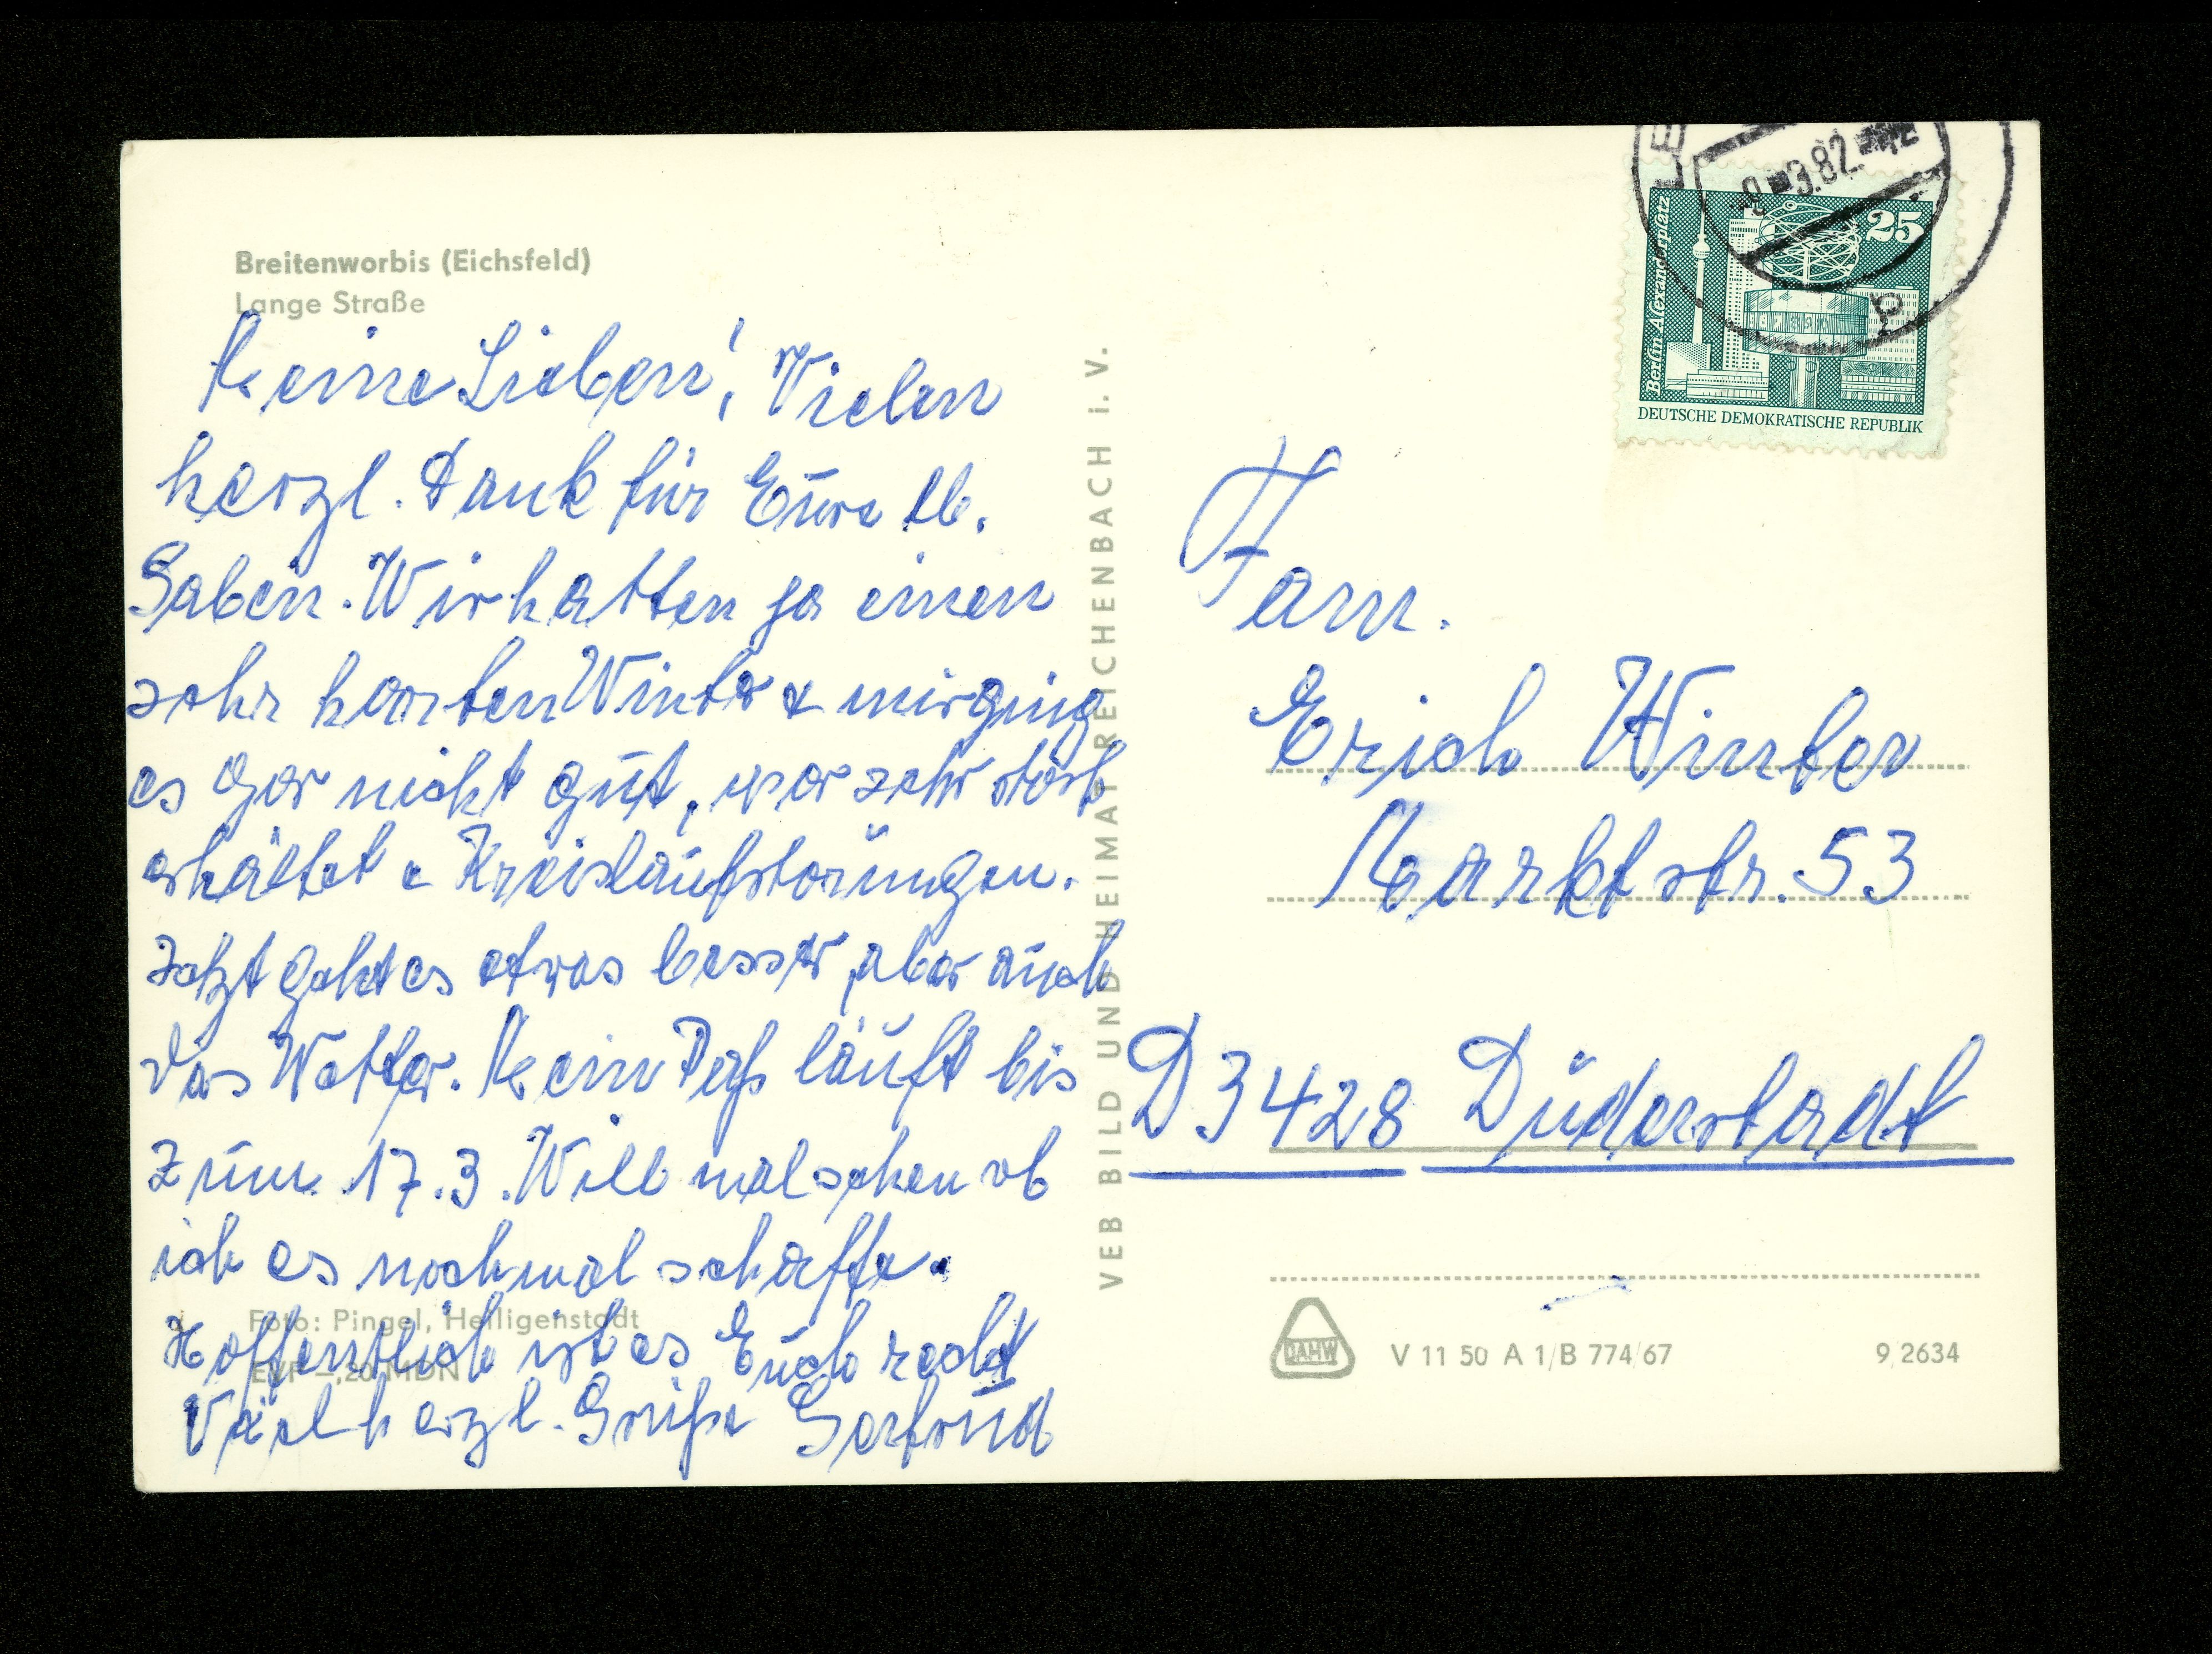 Breitenworbis (Eichsfeld)
Lange Straße
Meine Lieben! Vielen
herzl. Dank für Eure lb.
Gaben. Wir hatten ja einen
sehr harten Winter & mir ging
es gar nicht gut, war sehr stark
erkältet u Kreislaufstörungen.
Jetzt geht es etwas besser, aber auch
das Wetter. Mein Paß läuft bis
zum 17.3. Will mal sehen ob
ich es nochmal schaffe.
Hoffentlich ist es Euch recht
Viel herzl. Grüße Gertrud
Foto: Pingel, Heiligenstadt
EVP –,20 MDN
VEB BILD UND HEIMAT REICHENBACH i. V.
3.82
Berlin Alexanderplatz
25
DEUTSCHE DEMOKRATISCHE REPUBLIK
Fam.
Erich Winter
Marktstr. 53
D 3428 Duderstadt
DAHW
V 11 50 A 1/B 774/67
9/2634